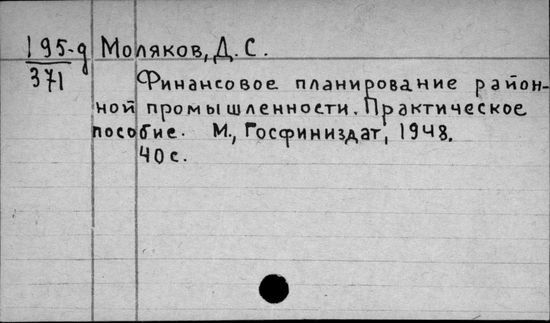 195-д Моляков, Д. С.
371
Финансовое планирование район-
ной промышленности. Практическое
пособие. М., Госфиниздат, 1948.
40 с.